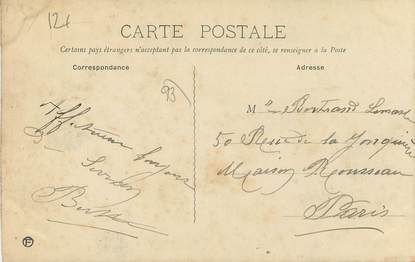 12€
CARTE POSTALE
Certains pays étrangers n'acceptant pas la correspondance de ce côté, se renseigner à la Poste
Correspondance
Adresse
93
Affectueux bonjour
Bertrand
50 Rue de la Jonquière
Maison Rousseau
Paris